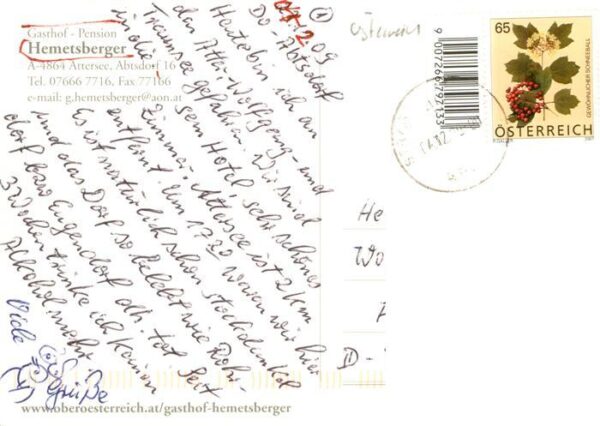 Gasthof - Pension
Hemetsberger
A-4864 Attersee, Abtsdorf 16
Tel. 07666 7716, Fax 77166
e-mail: g.hemetsberger@aon.at
①
07.12.09
Do-Abtsdorf
Heute bin ich an
den Atter-Wolfgang- und
Traunsee gefahren. Wir sind
in die sem Hotel, sehr schönes
Zimmer. Attersee ist 2 km
entfernt. Um 17.30 waren wir hier
Es ist natürlich schon stockdunkel
und das Dorf so belebt wie
dorf bzw Eugendorf ab. Seit
3 Wochen trinke ich keinen
Alkohol mehr
Viele
Grüße
www.oberoesterreich.at/gasthof-hemetsberger
Österreich
9 007266 797133
65
GEWÖHNLICHER SCHNEEBALL
ÖSTERREICH
He
Wo
D -